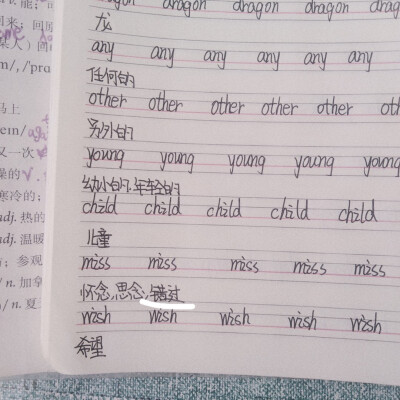 dragon dragon dragon dragon dragon
龙
any any any any any any
任何的
other other other other other oth
另外的
young young young young young
幼小的、年轻的
child child child child child
儿童
miss miss miss miss miss
怀念、思念、错过
wish wish wish wish wish
希望
能；
回来；回原
某人）
m/, /prɒ
马上
eɪn/
又一次
燥的
寒冷的；
adj. 热的
adj. 温暖
；参观
/n. 加拿
/n. 夏